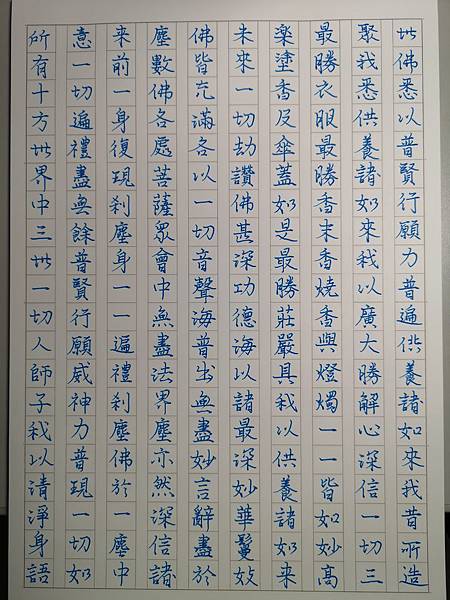 所有十方世界中三世一切人師子我以清淨身語
意一切遍禮盡無餘普賢行願威神力普現一切如
來前一身復現剎塵身一一遍禮剎塵佛於一塵中
塵數佛各處菩薩眾會中無盡法界塵亦然深信諸
佛皆充滿各以一切音聲海普出無盡妙言辭盡於
未來一切劫讚佛甚深功德海以諸最深妙華鬘妓
樂塗香及傘蓋如是最勝莊嚴具我以供養諸如來
最勝衣服最勝香末香燒香與燈燭一一皆如妙高
聚我悉供養諸如來我以廣大勝解心深信一切三
世佛悉以普賢行願力普遍供養諸如來我昔所造